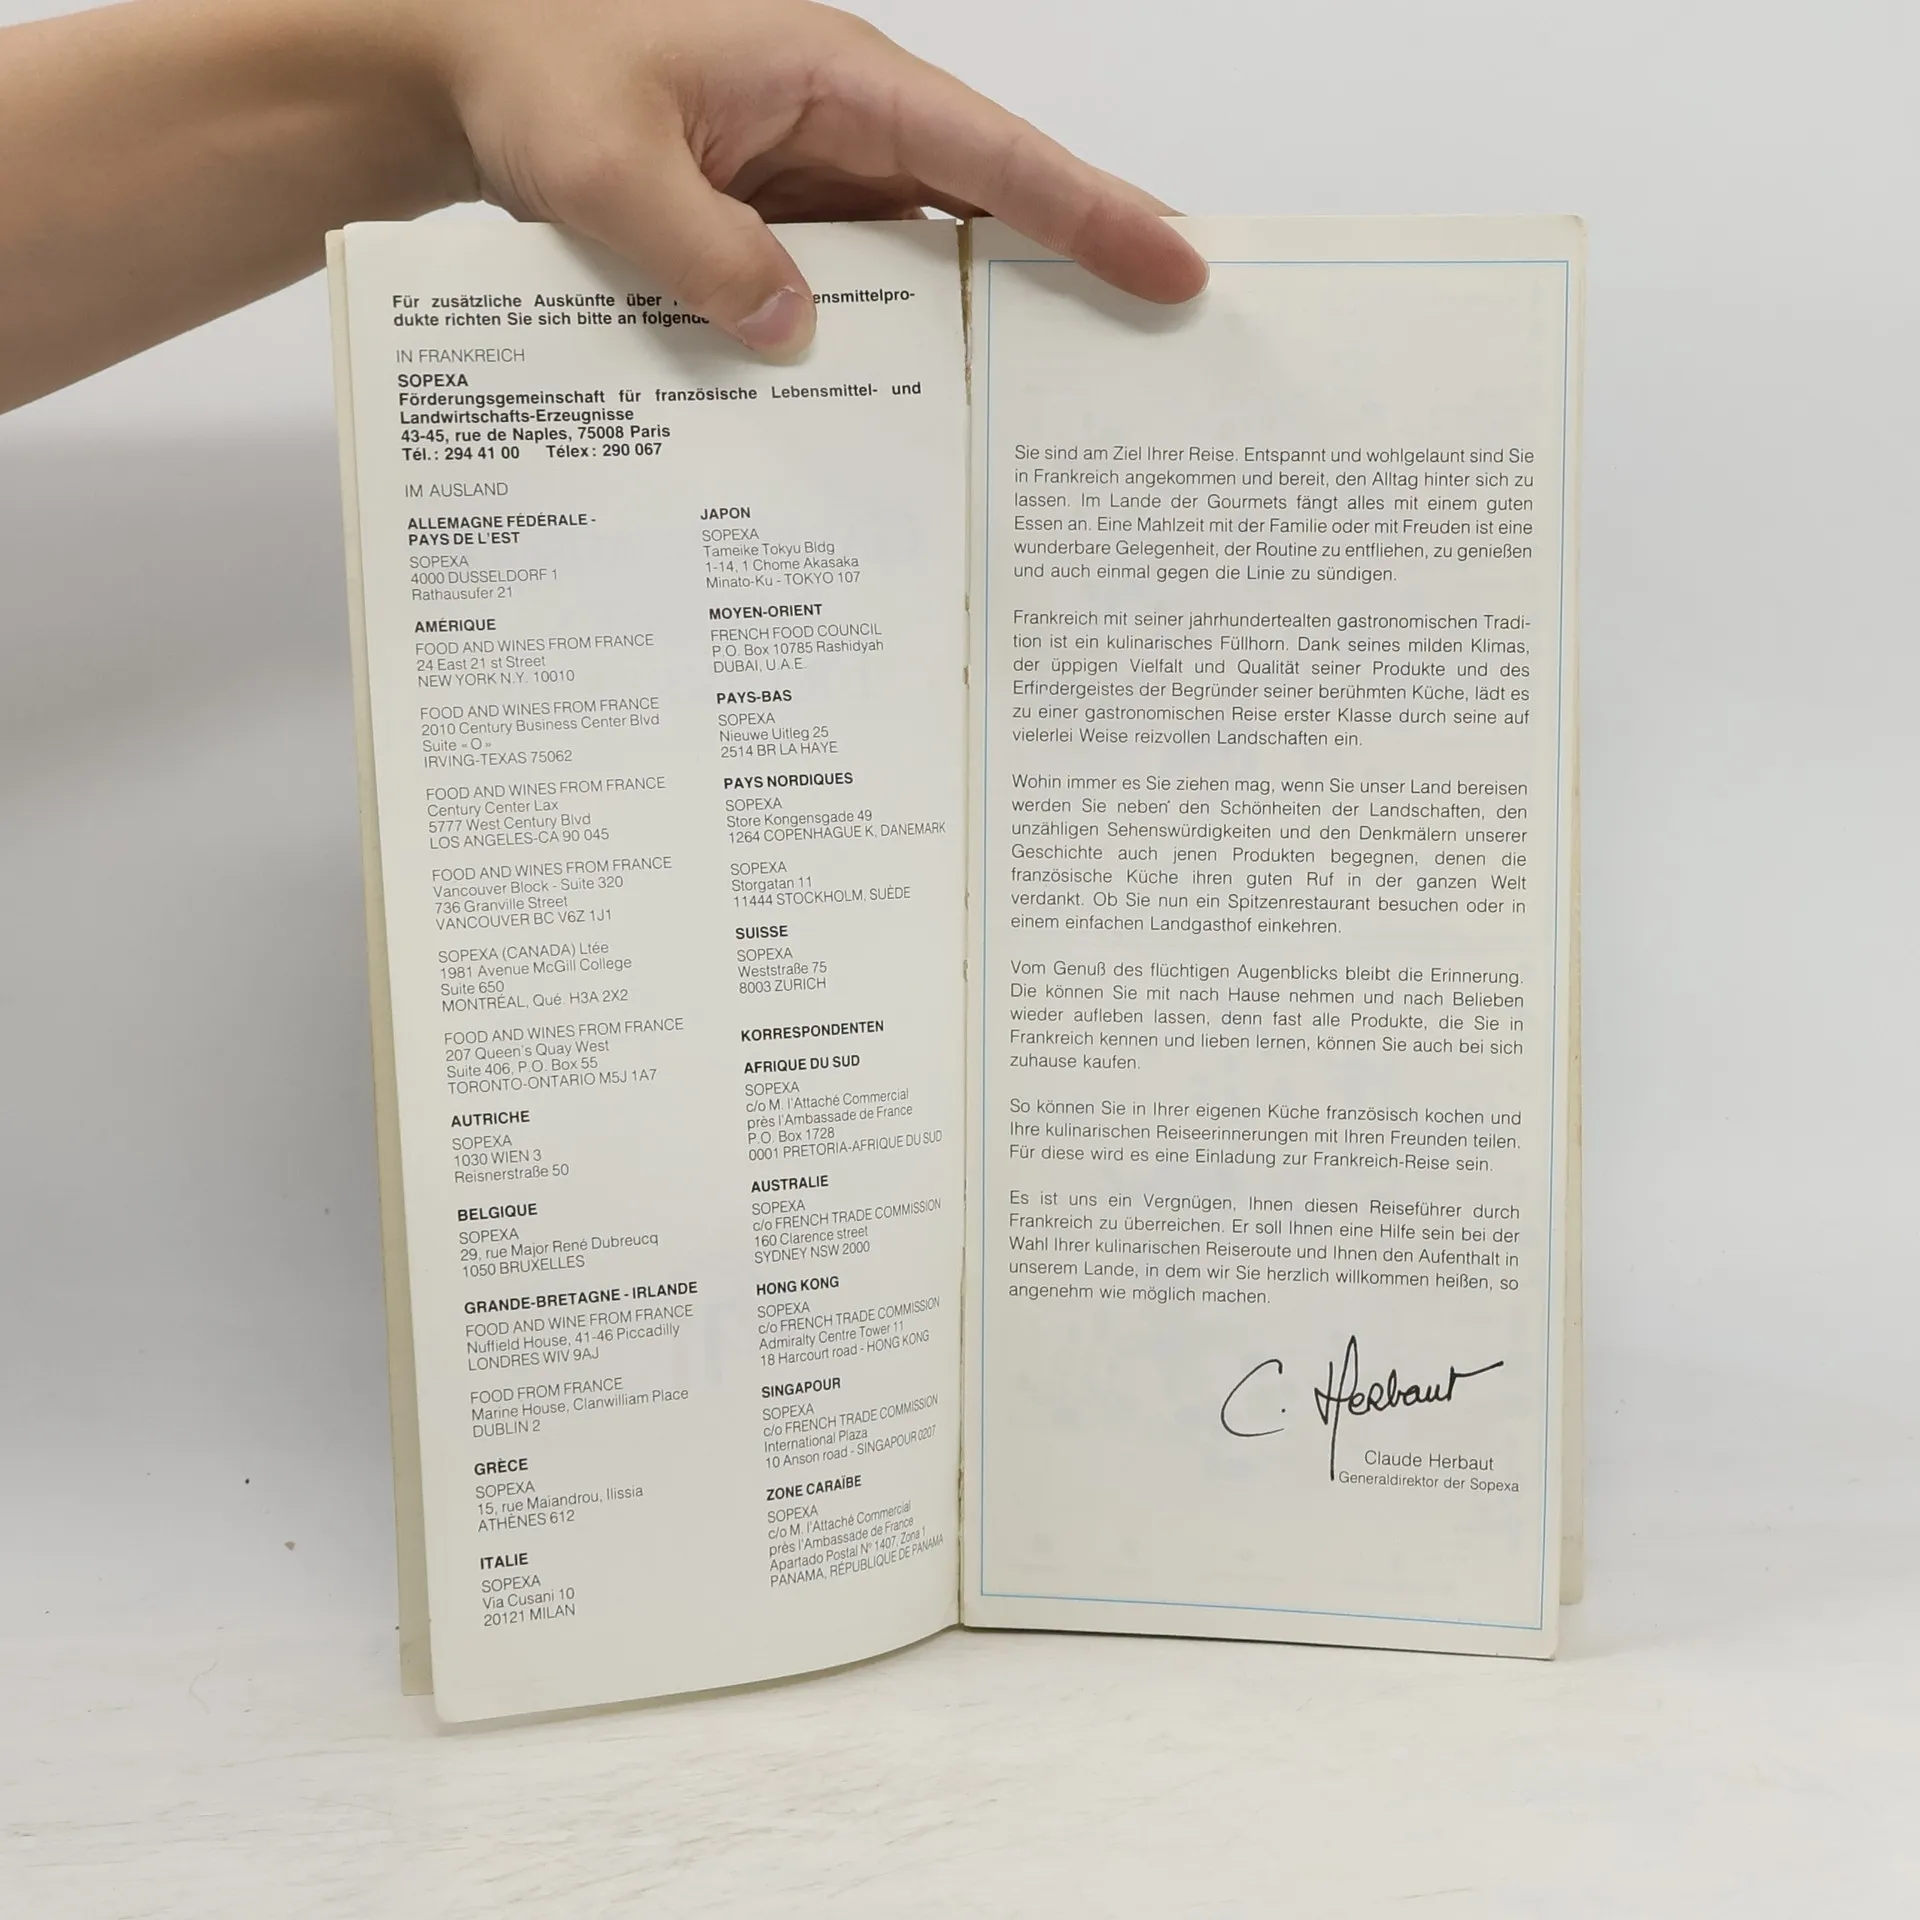 Für zusätzliche Auskünfte über ensmittelpro-
dukte richten Sie sich bitte an
IN FRANKREICH
SOPEXA
Förderungsgemeinschaft für französische Lebensmittel- und
Landwirtschafts-Erzeugnisse
43-45, rue de Naples, 75008 Paris
Tél.: 294 41 00 Télex: 290 067
IM AUSLAND
ALLEMAGNE FÉDÉRALE -
PAYS DE L'EST
SOPEXA
4000 DUSSELDORF 1
Rathausufer 21
AMÉRIQUE
FOOD AND WINES FROM FRANCE
24 East 21 st Street
NEW YORK N.Y. 10010
FOOD AND WINES FROM FRANCE
2010 Century Business Center Blvd
Suite « O »
IRVING-TEXAS 75062
FOOD AND WINES FROM FRANCE
Century Center Lax
5777 West Century Blvd
LOS ANGELES-CA 90 045
FOOD AND WINES FROM FRANCE
Vancouver Block - Suite 320
736 Granville Street
VANCOUVER BC V6Z 1J1
SOPEXA (CANADA) Ltée
1981 Avenue McGill College
Suite 650
MONTRÉAL, Qué. H3A 2X2
FOOD AND WINES FROM FRANCE
207 Queen's Quay West
Suite 406, P.O. Box 55
TORONTO-ONTARIO M5J 1A7
AUTRICHE
SOPEXA
1030 WIEN 3
Reisnerstraße 50
BELGIQUE
SOPEXA
29, rue Major René Dubreucq
1050 BRUXELLES
GRANDE-BRETAGNE - IRLANDE
FOOD AND WINE FROM FRANCE
Nuffield House, 41-46 Piccadilly
LONDRES WIV 9AJ
FOOD FROM FRANCE
Marine House, Clanwilliam Place
DUBLIN 2
GRÈCE
SOPEXA
15, rue Maiandrou, Ilissia
ATHÈNES 612
ITALIE
SOPEXA
Via Cusani 10
20121 MILAN
JAPON
SOPEXA
Tameike Tokyu Bldg
1-14, 1 Chome Akasaka
Minato-Ku - TOKYO 107
MOYEN-ORIENT
FRENCH FOOD COUNCIL
P.O. Box 10785 Rashidyah
DUBAI, U.A.E.
PAYS-BAS
SOPEXA
Nieuwe Uitleg 25
2514 BR LA HAYE
PAYS NORDIQUES
SOPEXA
Store Kongensgade 49
1264 COPENHAGUE K, DANEMARK
SOPEXA
Storgatan 11
11444 STOCKHOLM, SUÈDE
SUISSE
SOPEXA
Weststraße 75
8003 ZURICH
KORRESPONDENTEN
AFRIQUE DU SUD
SOPEXA
c/o M. l'Attaché Commercial
près l'Ambassade de France
P.O. Box 1728
0001 PRETORIA-AFRIQUE DU SUD
AUSTRALIE
SOPEXA
c/o FRENCH TRADE COMMISSION
160 Clarence street
SYDNEY NSW 2000
HONG KONG
SOPEXA
c/o FRENCH TRADE COMMISSION
Admiralty Centre Tower 11
18 Harcourt road - HONG KONG
SINGAPOUR
SOPEXA
c/o FRENCH TRADE COMMISSION
International Plaza
10 Anson road - SINGAPOUR 0207
ZONE CARAÏBE
SOPEXA
c/o M. l'Attaché Commercial
près l'Ambassade de France
Apartado Postal N° 1407, Zona 1
PANAMA, RÉPUBLIQUE DE PANAMA
Sie sind am Ziel Ihrer Reise. Entspannt und wohlgelaunt sind Sie
in Frankreich angekommen und bereit, den Alltag hinter sich zu
lassen. Im Lande der Gourmets fängt alles mit einem guten
Essen an. Eine Mahlzeit mit der Familie oder mit Freuden ist eine
wunderbare Gelegenheit, der Routine zu entfliehen, zu genießen
und auch einmal gegen die Linie zu sündigen.
Frankreich mit seiner jahrhundertealten gastronomischen Tradi-
tion ist ein kulinarisches Füllhorn. Dank seines milden Klimas,
der üppigen Vielfalt und Qualität seiner Produkte und des
Erfindergeistes der Begründer seiner berühmten Küche, lädt es
zu einer gastronomischen Reise erster Klasse durch seine auf
vielerlei Weise reizvollen Landschaften ein.
Wohin immer es Sie ziehen mag, wenn Sie unser Land bereisen
werden Sie neben den Schönheiten der Landschaften, den
unzähligen Sehenswürdigkeiten und den Denkmälern unserer
Geschichte auch jenen Produkten begegnen, denen die
französische Küche ihren guten Ruf in der ganzen Welt
verdankt. Ob Sie nun ein Spitzenrestaurant besuchen oder in
einem einfachen Landgasthof einkehren.
Vom Genuß des flüchtigen Augenblicks bleibt die Erinnerung.
Die können Sie mit nach Hause nehmen und nach Belieben
wieder aufleben lassen, denn fast alle Produkte, die Sie in
Frankreich kennen und lieben lernen, können Sie auch bei sich
zuhause kaufen.
So können Sie in Ihrer eigenen Küche französisch kochen und
Ihre kulinarischen Reiseerinnerungen mit Ihren Freunden teilen.
Für diese wird es eine Einladung zur Frankreich-Reise sein.
Es ist uns ein Vergnügen, Ihnen diesen Reiseführer durch
Frankreich zu überreichen. Er soll Ihnen eine Hilfe sein bei der
Wahl Ihrer kulinarischen Reiseroute und Ihnen den Aufenthalt in
unserem Lande, in dem wir Sie herzlich willkommen heißen, so
angenehm wie möglich machen.
C. Herbaut
Claude Herbaut
Generaldirektor der Sopexa